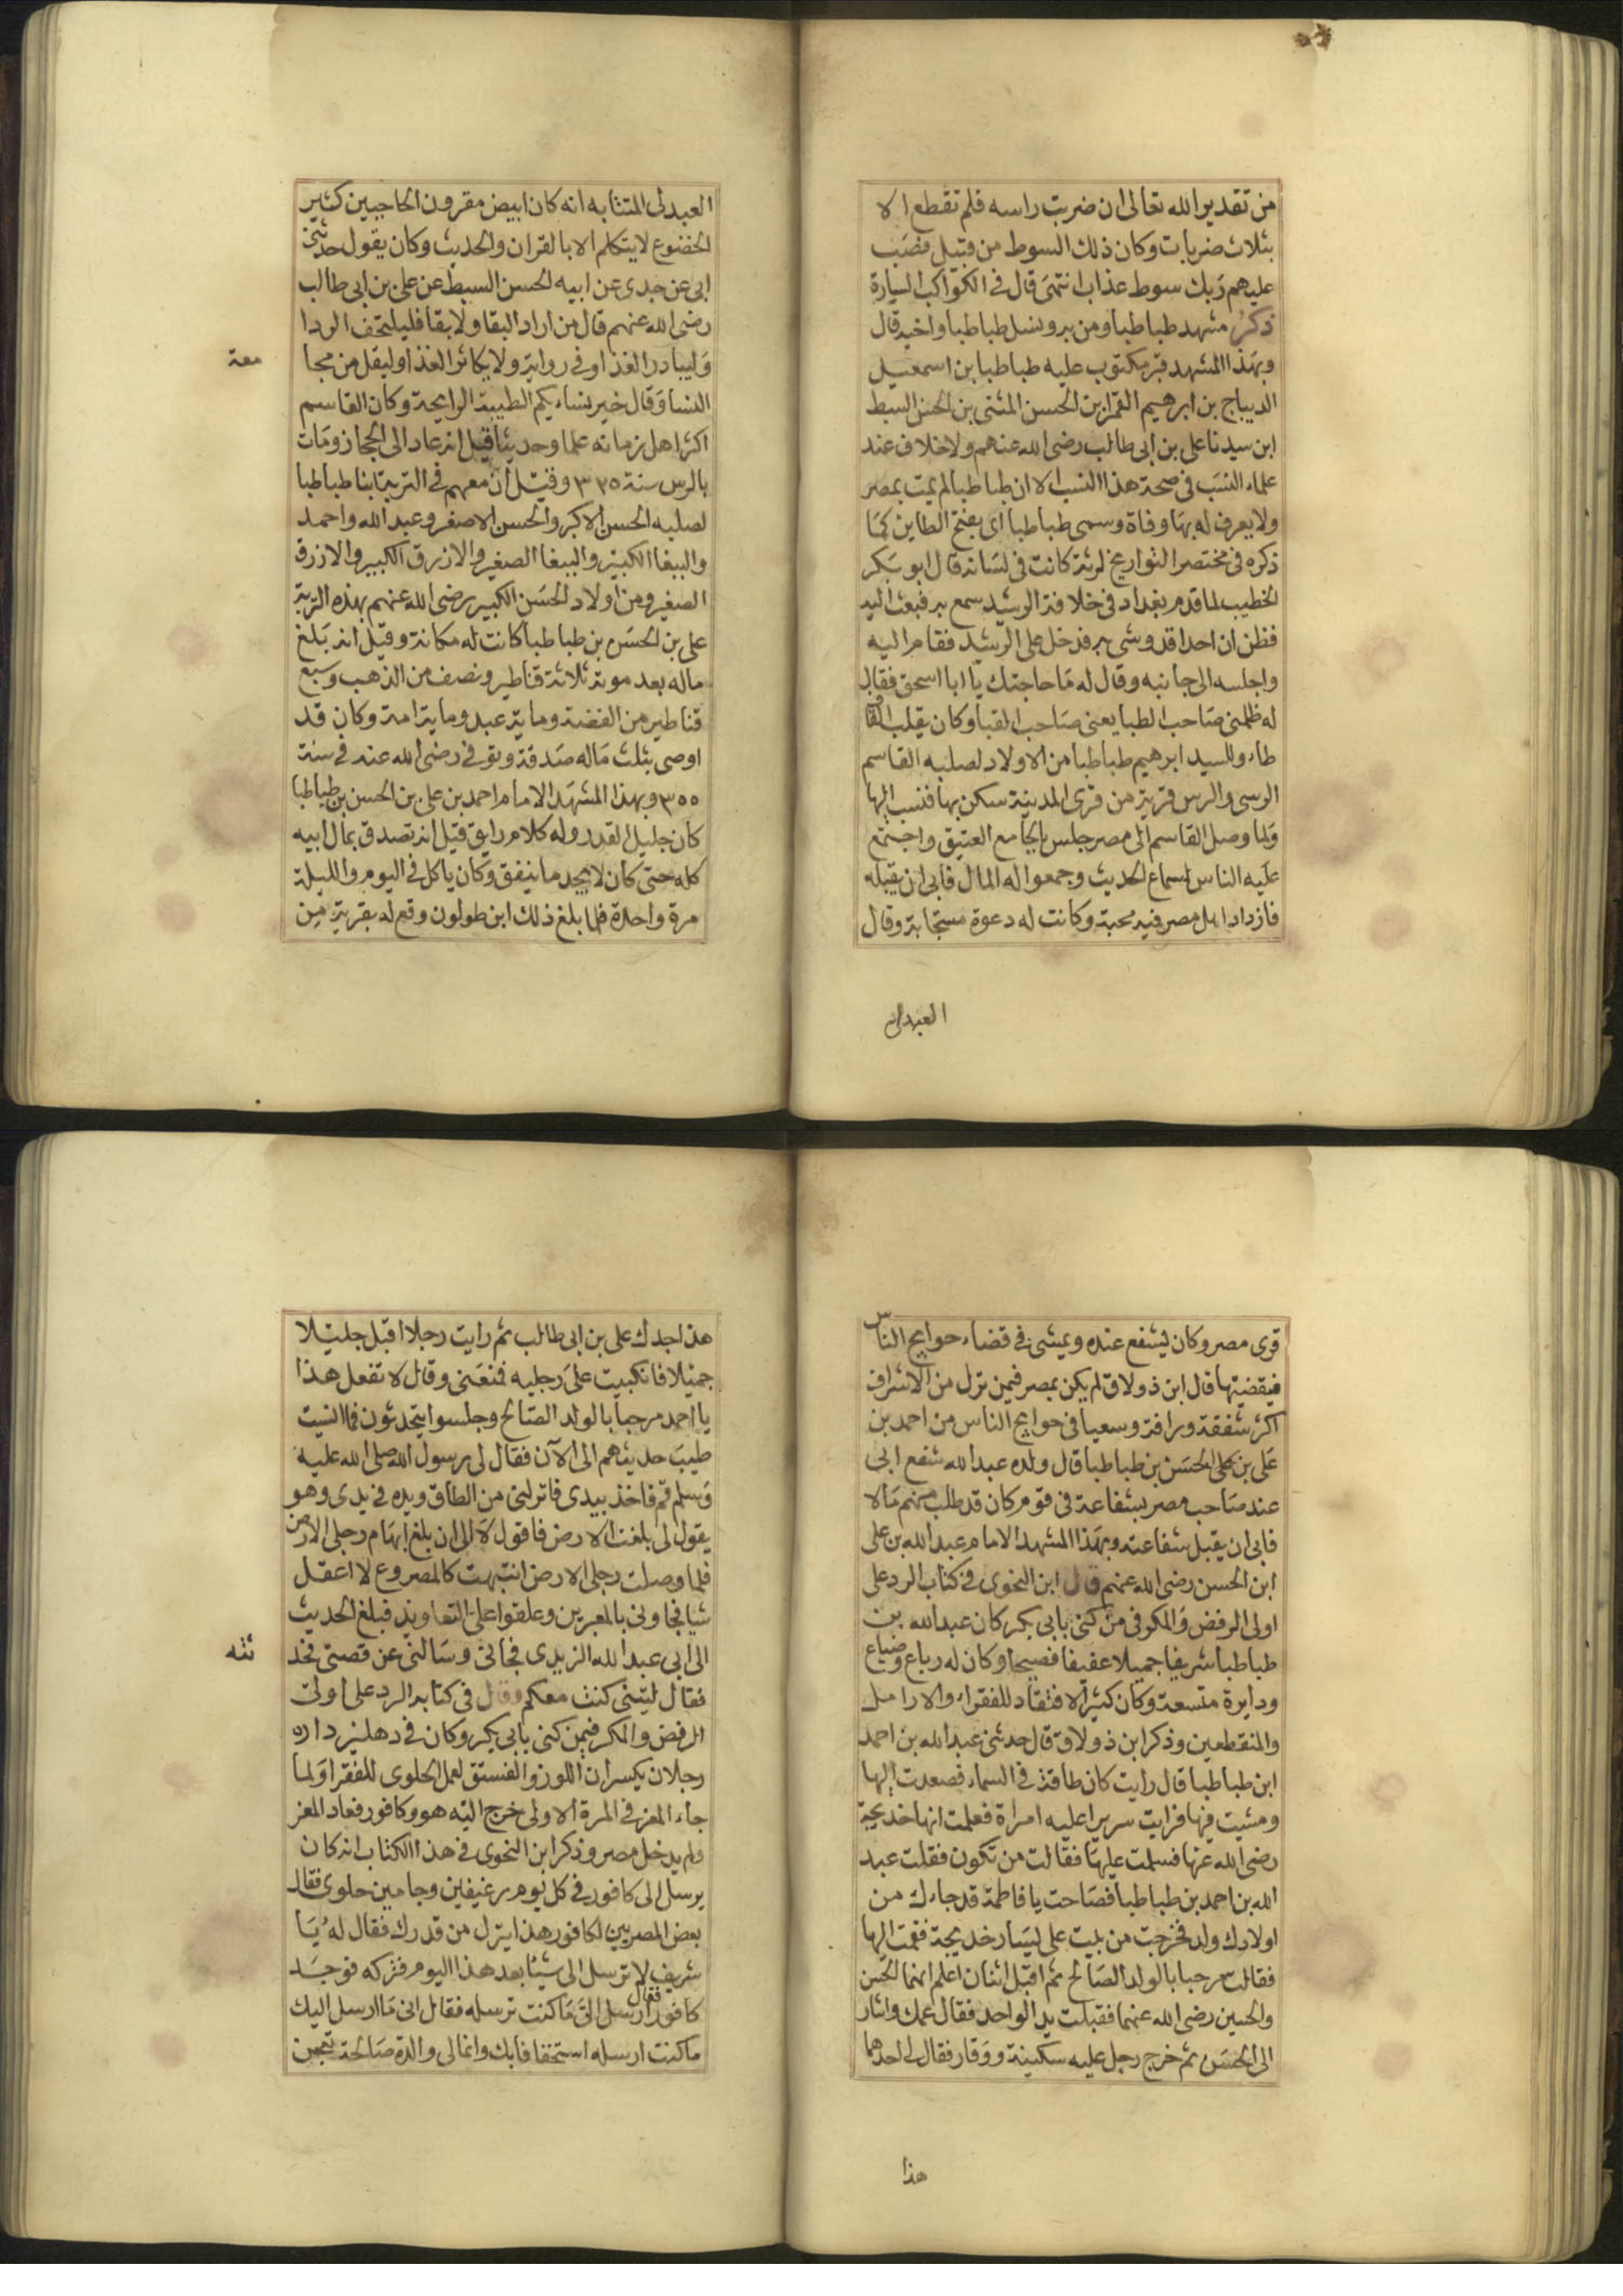 من تقدير الله تعالى ان ضربت راسه فلم تقطع الا
بثلاث ضربات وكان ذلك السوط من قبيل فصب
عليهم ربك سوط عذاب انتهى قال فى الكواكب السيارة
ذكر مشهد طباطبا ومن به ونسل طباطبا واخيه قال
وبهذا المشهد قبر مكتوب عليه طباطبا بن اسمعيل
الديباج بن ابرهيم الغمر ابن الحسن المثنى بن الحسن السبط
ابن سيدنا على بن ابى طالب رضى الله عنهم ولا خلاف عند
علماء النسب فى صحة هذا النسب الا ان طباطبا لم يمت بمصر
ولا يعرف له بها وفاة وسمى طباطبا اى بفتح الطاين كما
ذكره فى مختصر التواريخ لرثة كانت فى لسانه قال ابو بكر
الخطيب لما قدم بغداد فى خلافة الرشيد سمع به فبعث اليه
فظن ان احدا قد وشى به فدخل على الرشيد فقام اليه
واجلسه الى جانبه وقال له ما حاجتك يا ابا اسحق فقال
له ظلمنى صاحب الطبا يعنى صاحب القبا وكان يقلب القاف
طاء وللسيد ابرهيم طباطبا من الاولاد لصلبه القاسم
الرسى والرس قرية من قرى المدينة سكن بها فنسب اليها
ولما وصل القاسم الى مصر جلس بالجامع العتيق واجتمع
عليه الناس لسماع الحديث وجمعوا له المال فابى ان يقبله
فازداد اهل مصر فيه محبة وكانت له دعوة مستجابة وقال
العبدلى
العبدلى النسابة انه كان ابيض مقرون الحاجبين كثير
الخضوع لا يتكلم الا بالقران والحديث وكان يقول حدثنى
ابى عن جدى عن ابيه الحسن السبط عن على بن ابى طالب
رضى الله عنهم قال من اراد البقا ولا بقا فليخفف الردا
وليبادر الغذا وفى رواية ولا يكاثر الغذا وليقل من مجا
معة
النسا وقال خير نسايكم الطيبة الرايحة وكان القاسم
اكثر اهل زمانه علما وحديثا قيل انه عاد الى الحجاز ومات
بالرس سنة ٣٣٥ وقيل ان معهم فى التربة ابنا طباطبا
لصلبه الحسن الاكبر والحسن الاصغر وعبد الله واحمد
والببغا الكبير والببغا الصغير والازرق الكبير والازرق
الصغير ومن اولاد الحسن الكبير رضى الله عنهم بهذه التربة
على بن الحسن بن طباطبا كانت له مكانة وقيل انه بلغ
ماله بعد موته ثلاثة قناطير ونصف من الذهب وسبع
قناطير من الفضة وماية عبد وماية امة وكان قد
اوصى بثلث ماله صدقة وتوفى رضى الله عنه فى سنة
٣٥٥ وبهذا المشهد الامام احمد بن على بن الحسن بن طباطبا
كان جليل القدر وله كلام رايق قيل انه تصدق بمال ابيه
كله حتى كان لا يجد ما ينفق وكان ياكل فى اليوم والليلة
مرة واحدة فلما بلغ ذلك ابن طولون وقع له بقرية من
قرى مصر وكان يشفع عنده ويمشى فى قضاء حوايج الناس
فيقضيها قال ابن ذولاق لم يكن بمصر فيمن نزل من الاشراف
اكثر شفقة ورافة وسعيا فى حوايج الناس من احمد بن
على بن الحسن بن طباطبا قال ولده عبد الله شفع ابى
عند صاحب مصر بشفاعة فى قوم كان قد طلب منهم مالا
فابى ان يقبل شفاعته وبهذا المشهد الامام عبد الله بن على
ابن الحسن رضى الله عنهم قال ابن النحوى فى كتاب الرد على
اولى الرفض والمكر فى من كنى بابى بكر كان عبد الله بن
طباطبا شريفا جميلا عفيفا فصيحا وكان له رباع وضياع
ودايرة متسعة وكان كثير الافتقاد للفقراء والارامل
والمنقطعين وذكر ابن ذولاق قال حدثنى عبد الله بن احمد
ابن طباطبا قال رايت كان طاقة فى السماء فصعدت اليها
ومشيت فيها فرايت سريرا عليه امراة فعلمت انها خديجة
رضى الله عنها فسلمت عليها فقالت من تكون فقلت عبد
الله بن احمد بن طباطبا فصاحت يا فاطمة قد جاءك من
اولادك ولد فخرجت من بيت على يسار خديجة فقمت اليها
فقالت مرحبا بالولد الصالح ثم اقبل اثنان اعلم انهما الحسن
والحسين رضى الله عنهما فقبلت يد الواحد فقال عمك واشار
الى الحسن ثم خرج رجل عليه سكينة ووقار فقال لى احدهما
هذا
هذا جدك على بن ابى طالب ثم رايت رجلا اقبل جليلا
جميلا فانكببت على رجليه فمنعنى وقال لا تفعل هذا
يا احمد مرحبا بالولد الصالح وجلسوا يتحدثون فما انسيت
طيب حديثهم الى الآن فقال لى رسول الله صلى الله عليه
وسلم قم فاخذ بيدى فانزلنى من الطاق ويده فى يدى وهو
يقول لى بلغت الارض فاقول لا الى ان بلغ ابهام رجلى الارض
فلما وصلت رجلى الارض انتبهت كالمصروع لا اعقل
شيا فجاونى بالمعبرين وعلقوا على التعاويذ فبلغ الحديث
الى ابى عبد الله الزيدى فجانى وسالنى عن قصتى فحد
ثته
فقال ليتنى كنت معكم وقال فى كتابه الرد على اولى
الرفض والمكر فيمن كنى بابى بكر وكان فى دهليز داره
رجلان يكسران اللوز والفستق لعمل الحلوى للفقرا ولما
جاء المعز فى المرة الاولى خرج اليه هو وكافور فعاد المعز
ولم يدخل مصر وذكر ابن النحوى فى هذا الكتاب انه كان
يرسل الى كافور فى كل يوم رغيفين وجامين حلوى فقال
بعض المصريين لكافور هذا ينزل من قدرك فقال له يا
شريف لا ترسل الى شيئا بعد هذا اليوم فتركه فوجد
كافور فقال ارسل الى ما كنت ترسله فقال انى ما ارسل اليك
ما كنت ارسله استخفافا بك وانما لى والدة صالحة تعجن